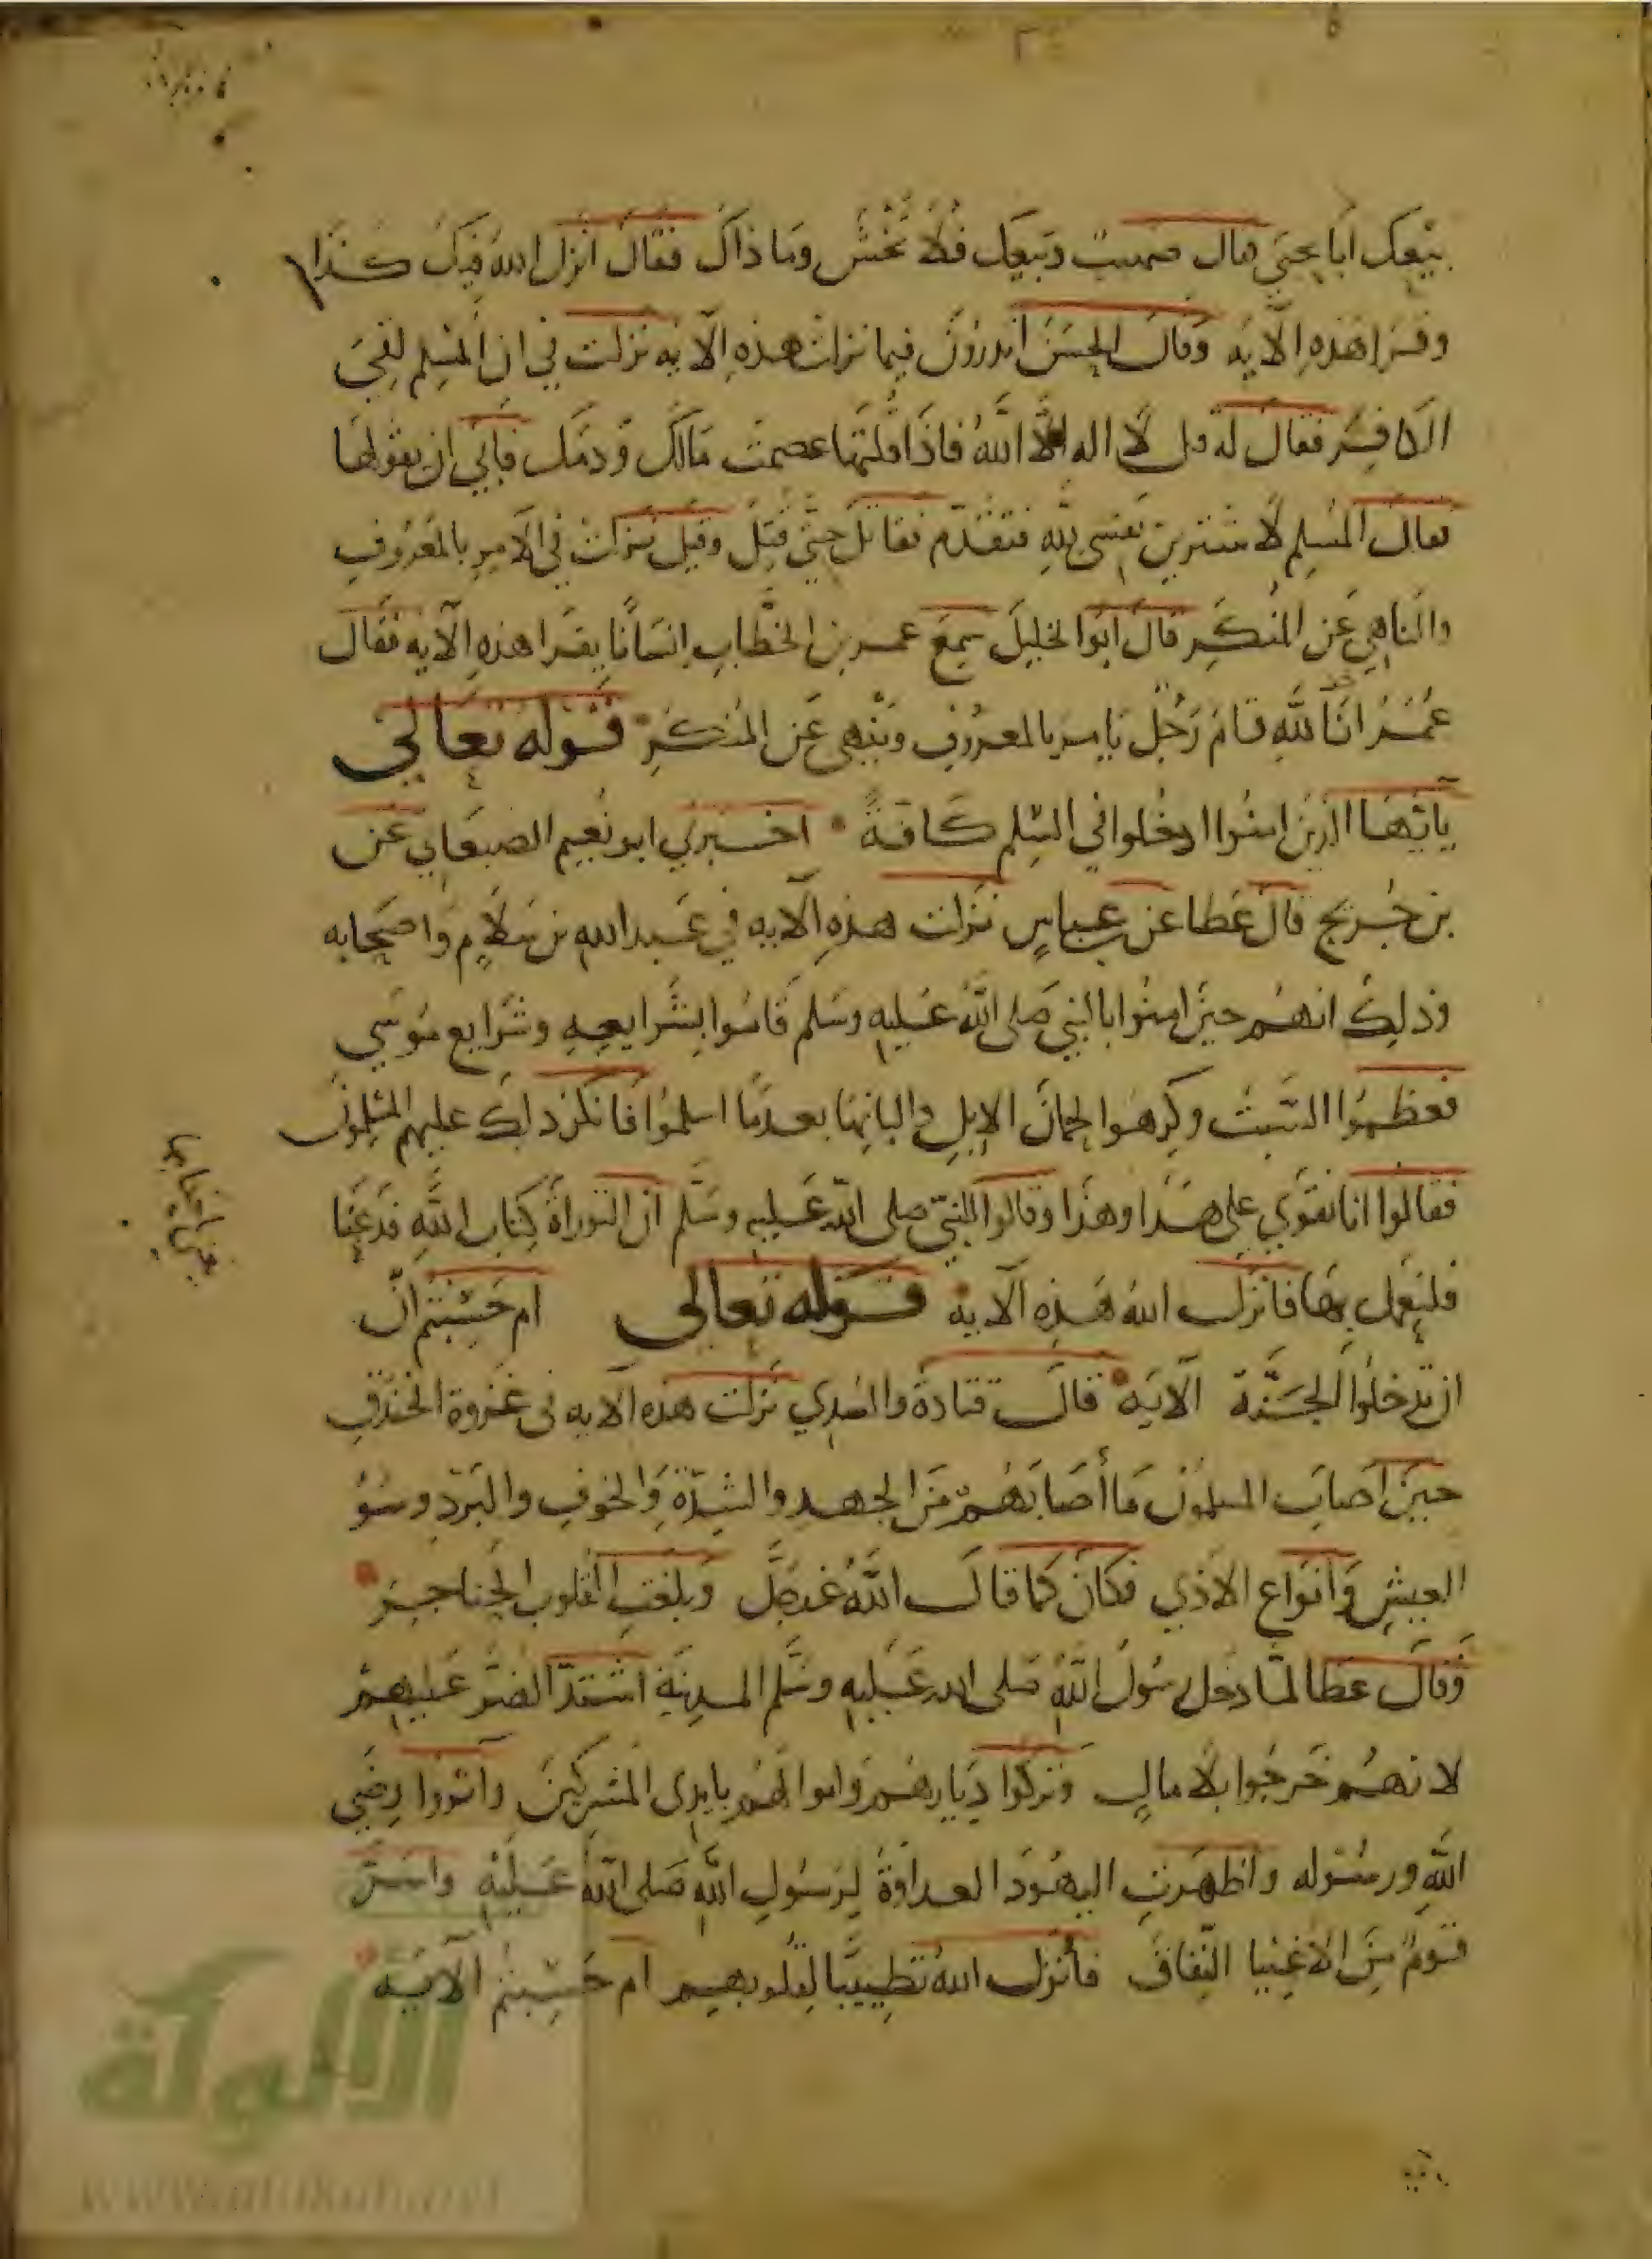 بيعك ابا يحيى فقال صهيب وبيعك فلا تخسر وما ذاك فقال انزل الله فيك كذا
وقرا هذه الآية وقال الحسن اتدرون فيما نزلت هذه الآيه نزلت في ان المسلم لقي
الكافر فقال له قل لا اله الا الله فاذا قلتها عصمت مالك ودمك فابي ان يقولها
فقال المسلم لا شترين نفسي لله فتقدم فقاتل حتى قتل وقيل نزلت في الآمر بالمعروف
والناهي عن المنكر قال ابوا الخليل سمع عمر بن الخطاب انسانا يقرا هذه الآيه فقال
عمر انا لله قام رجل يامر بالمعروف وينهى عن المنكر قوله تعالي
يايها الذين امنوا ادخلوا في السلم كافة اخبرني ابو نعيم الاصبهاني عن
بن جريج قال عطا عن عباس نزلت هذه الآيه في عبد الله بن سلام واصحابه
وذلك انهم حين امنوا بالنبي صلى الله عليه وسلم قاموا بشرايعه وشرايع موسي
فعظموا السبت وكرهوا لحمان الابل والبانها بعد ما اسلموا فانكر ذلك عليهم المسلمون
فقالوا انا نقوي على هذا وهذا وقالوا للنبي صلى الله عليه وسلم ان التوراة كتاب الله فدعنا
فلنعمل بها فانزل الله هذه الآية قوله تعالى ام حسبتم ان
ان تدخلوا الجنة الآيه قال قتادة والسدي نزلت هذه الآيه في غزوة الخندق
حين اصاب المسلمون ما أصابهم من الجهد والشدة والخوف والبرد وسو
العيش وانواع الاذي فكان كما قال الله عز وجل وبلغت القلوب الحناجر
وقال عطا لما دخل رسول الله صلى الله عليه وسلم المدينة اشتد الضر عليهم
لانهم خرجوا بلا مال وتركوا ديارهم واموالهم بايدي المشركين وآثروا رضي
الله ورسوله واظهرت اليهود العداوة لرسول الله صلى الله عليه واسر
قوم من الاغنيا النفاق فأنزل الله تطييبا لقلوبهم ام حسبتم الآيه
الألوكة
www.alukah.net